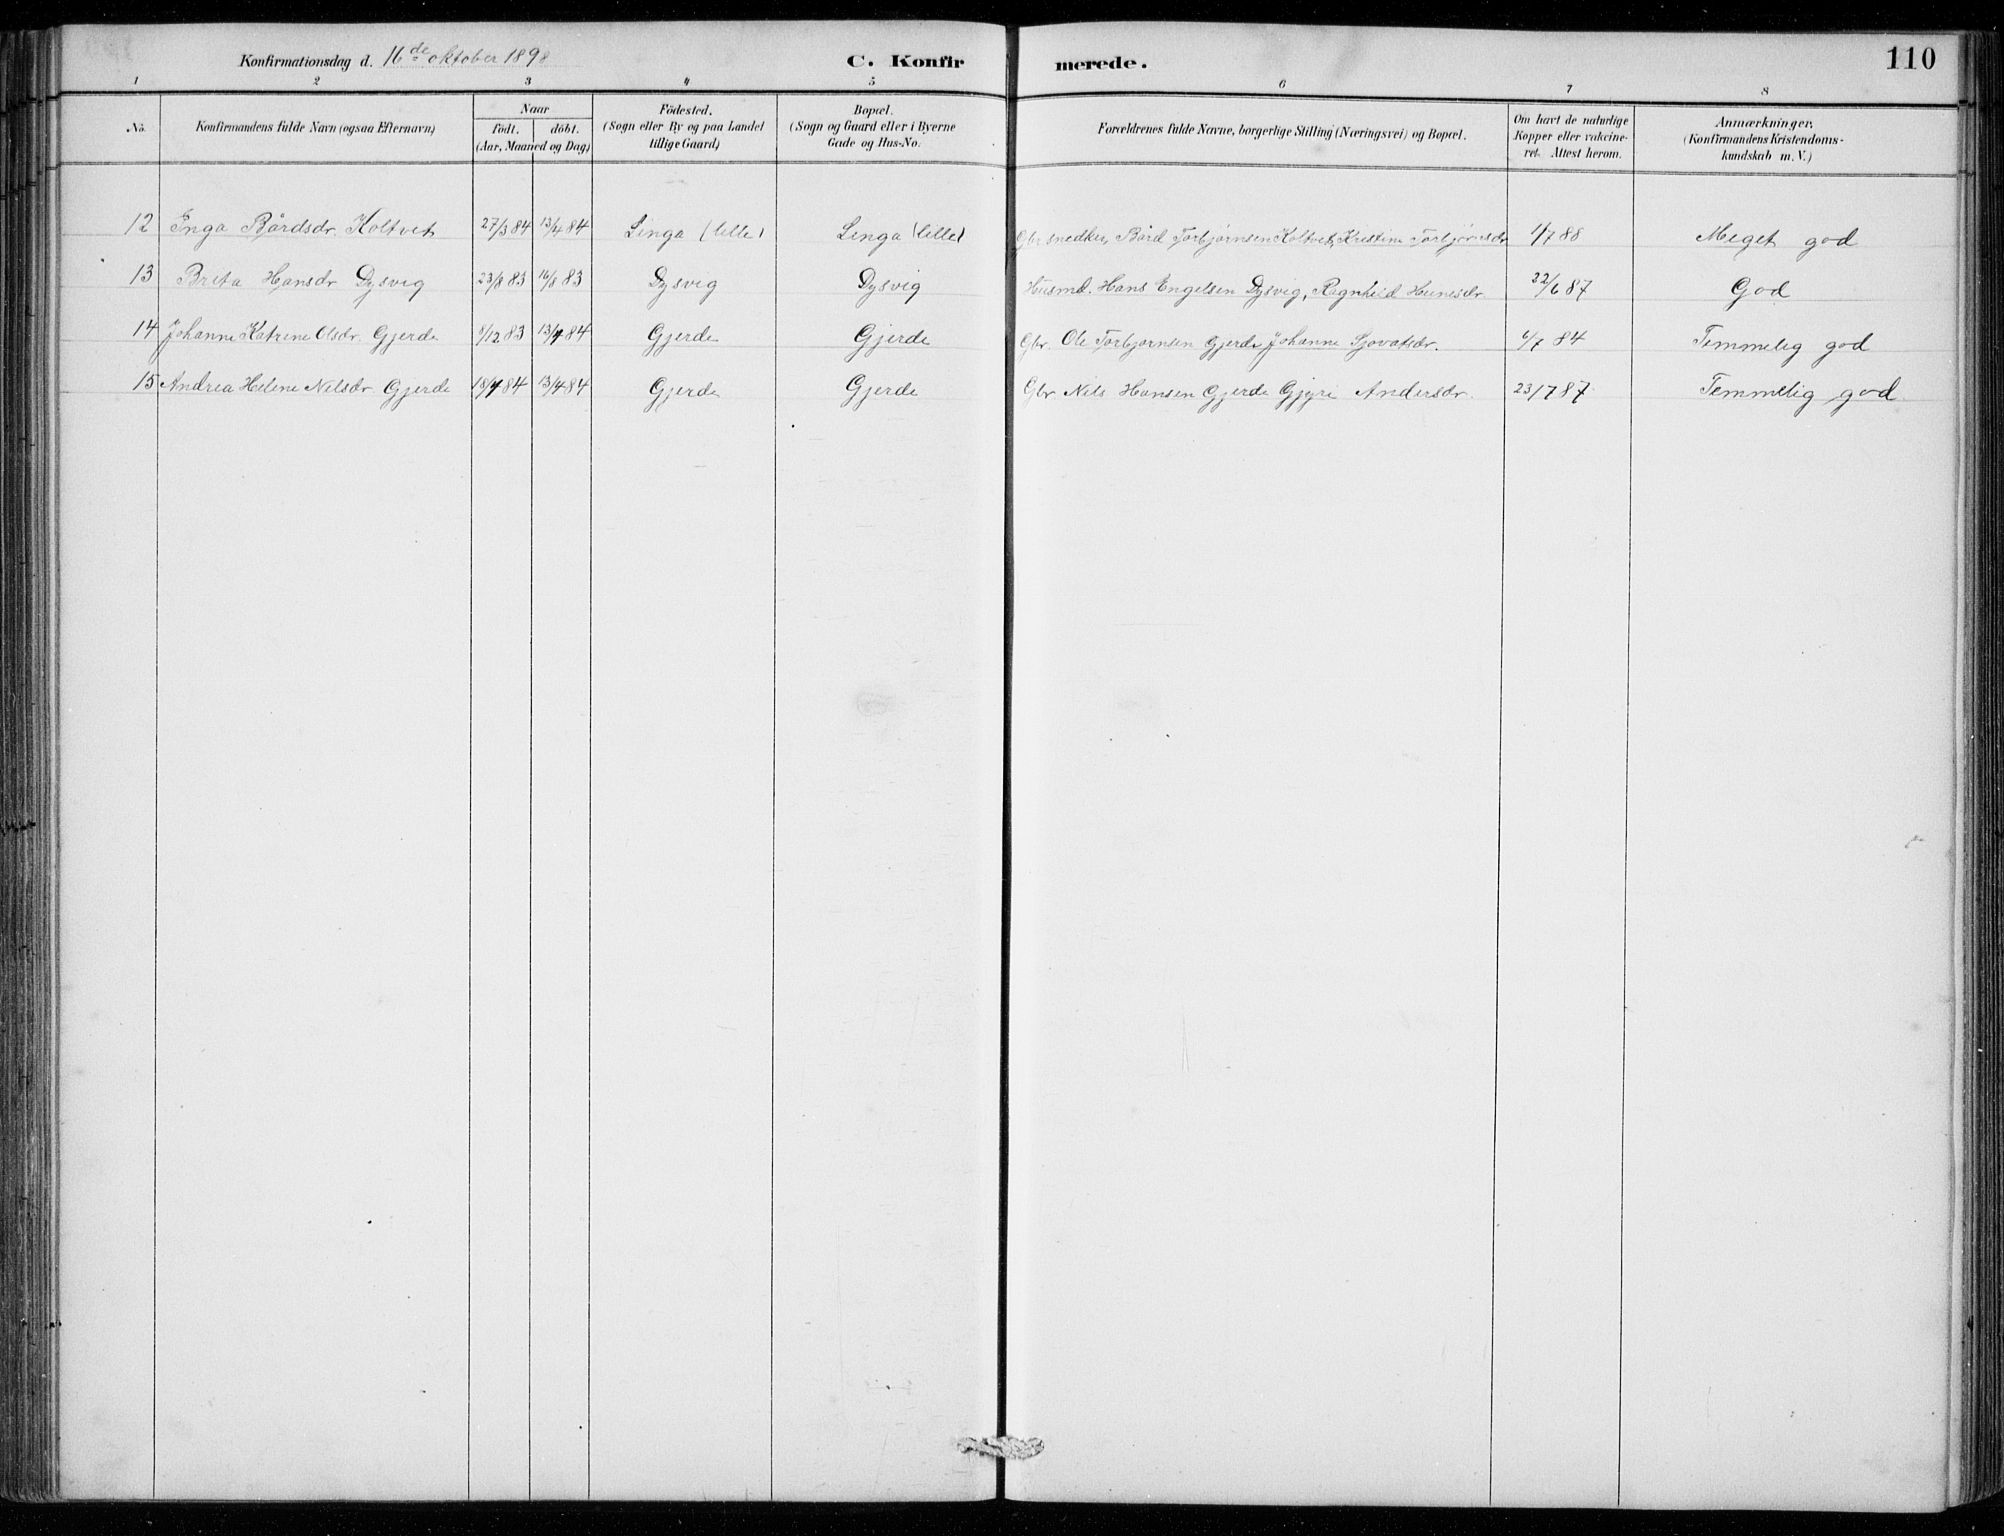 Konfirmationsdag d. 16de oktober 1898 C. Konfirmerede. 110
1 2 3 4 5 6 7 8
No. Konfirmandens fulde Navn (ogsaa Efternavn) Naar födt. döbt. (Aar, Maaned og Dag) Födested. (Sogn eller By og paa Landet tillige Gaard) Bopæl. (Sogn og Gaard eller i Byerne Gade og Hus-No. Forældrenes fulde Navne, borgerlige Stilling (Næringsvei) og Bopæl. Om havt de naturlige Kopper eller vakcineret. Attest herom. Anmærkninger. (Konfirmandens Kristendomskundskab m. V.)
12 Inga Bårdsdr. Koltvet 27/3 84 13/4 84 Linga (lille) Linga (lille) Gbr snedker Bård Torbjørnsen Koltvet, Kristine Torbjørnsdr 1/7 88 Meget god
13 Brita Hansdr Dysvig 23/8 83 16/8 83 Dysvig Dysvig Husmd. Hans Engelsen Dysvig, Ragnhild 22/6 87 God
14 Johanne Katrine Olsdr. Gjerde 8/12 83 13/4 84 Gjerde Gjerde Gbr. Ole Torbjørnsen Gjerde Johanne Sjovatsdr. 6/7 84 Temmelig god
15 Andrea Helene Nilsdr. Gjerde 18/4 84 13/4 84 Gjerde Gjerde Gbr Nils Hansen Gjerde Gjyri Andersdr. 23/7 87 Temmelig god.